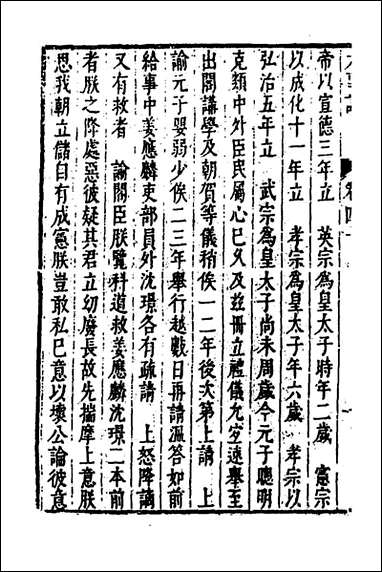 帝以宣德三年立　英宗為皇太子時年二歲　憲宗
以成化十一年立　孝宗為皇太子年六歲　孝宗以
弘治五年立　武宗為皇太子尚未周歲今元子聰明
克類中外臣民屬心已久及茲冊立禮儀允宜速舉至
出閣講學及朝賀等儀稍俟一二年後次第上請　上
諭元子嬰弱少俟二三年舉行越數日再請溫答如前
給事中姜應麟吏部員外沈璟各有疏請　上怒降謫
又有救者　諭閣臣朕覽科道救姜應麟沈璟二本前
者朕之降處惡彼疑其君立幼廢長故先揣摩上意朕
思我朝立儲自有成憲朕豈敢私己意以壞公論彼意